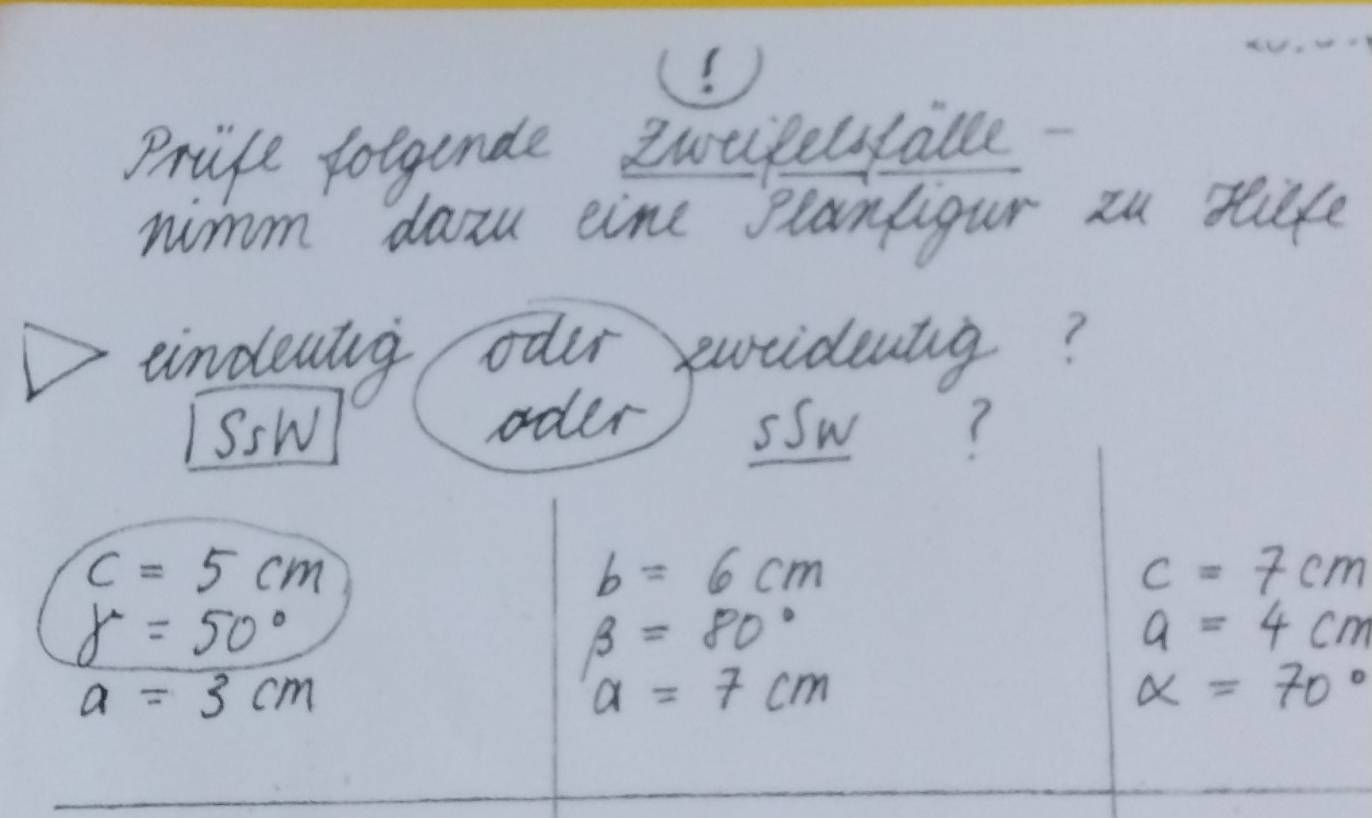 (!)
Prüfe folgende Zweifelsfälle –
nimm dazu eine Planfigur zu Hilfe
eindeutig oder zweideutig ?
SsW oder sSw ?
c = 5 cm
γ = 50°
a = 3 cm
b = 6 cm
β = 80°
a = 7 cm
c = 7 cm
a = 4 cm
α = 70°